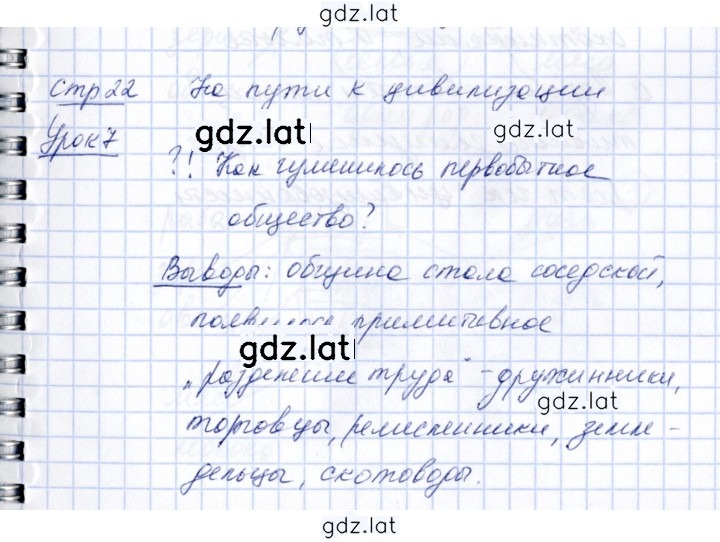 gdz.lat
Стр 22 На пути к цивилизации
gdz.lat
gdz.lat
Урок 7
?! Как изменилось первобытное
общество?
Выводы: община стала соседской,
появилось примитивное
gdz.lat
„разделение труда" - дружинники,
gdz.lat
торговцы, ремесленники, земле-
дельцы, скотоводы.
gdz.lat